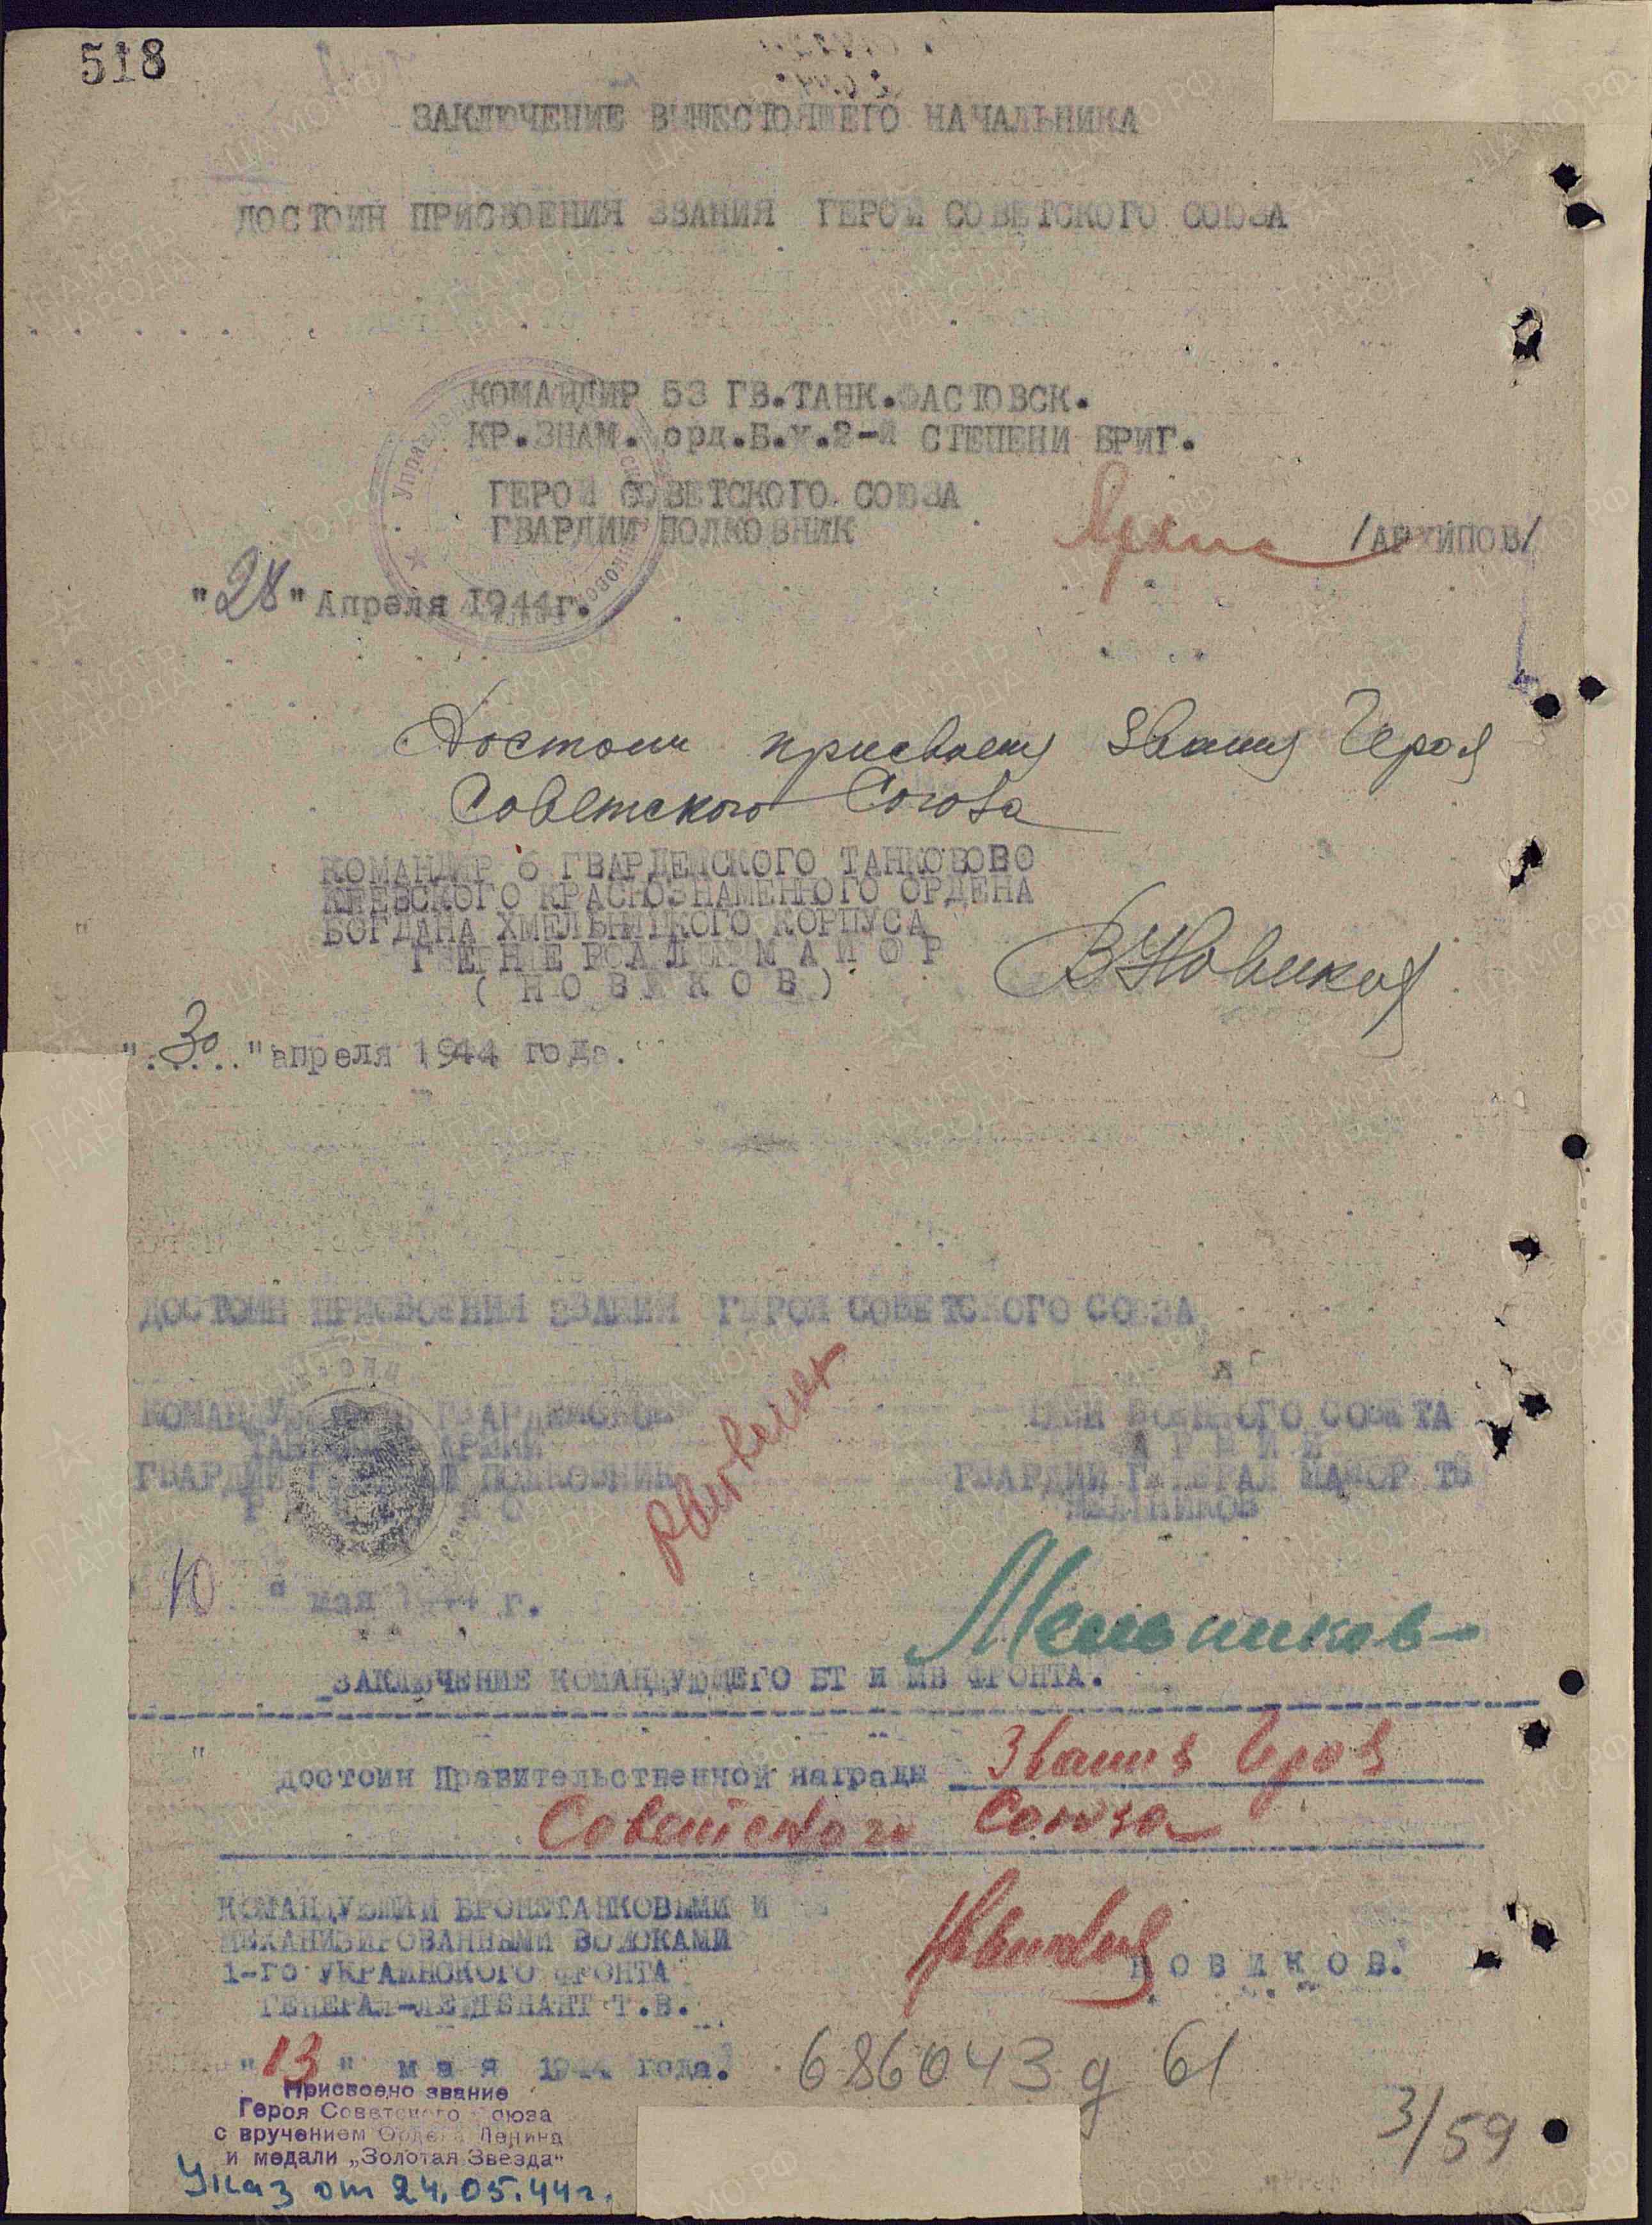 518
ЗАКЛЮЧЕНИЕ ВЫШЕСТОЯЩЕГО НАЧАЛЬНИКА
ДОСТОИН ПРИСВОЕНИЯ ЗВАНИЯ ГЕРОЙ СОВЕТСКОГО СОЮЗА
КОМАНДИР 53 ГВ.ТАНК.ФАСТОВСК.
КР.ЗНАМ. орд.Б.Х.2-Й СТЕПЕНИ БРИГ.
ГЕРОЙ СОВЕТСКОГО СОЮЗА
ГВАРДИИ ПОЛКОВНИК /АРХИПОВ/
"28" Апреля 1944г.
Достоин присвоения звания Героя
Советского Союза
КОМАНДИР 6 ГВАРДЕЙСКОГО ТАНКОВОВО
КИЕВСКОГО КРАСНОЗНАМЕННОГО ОРДЕНА
БОГДАНА ХМЕЛЬНИЦКОГО КОРПУСА
МАЙОР
(НОВИКОВ) ВНовиков
"30" апреля 1944 года.
ДОСТОИН ПРИСВОЕНИЯ ЗВАНИЯ ГЕРОЙ СОВЕТСКОГО СОЮЗА
ГВАРДЕЙСКОЙ ЧЛЕН ВОЕННОГО СОВЕТА
АРМИИ АРМИИ
ГВАРДИИ ПОЛКОВНИК ГВАРДИИ ГЕНЕРАЛ МАЙОР ТВ
МЕЛЬНИКОВ
10 " мая 1944 г.
Мельников
ЗАКЛЮЧЕНИЕ КОМАНДУЮЩЕГО БТ и МВ ФРОНТА.
достоин Правительственной награды Звания Героя
Советского Союза
КОМАНДУЮЩИЙ БРОНЕТАНКОВЫМИ И
МЕХАНИЗИРОВАННЫМИ ВОЙСКАМИ
1-ГО УКРАИНСКОГО ФРОНТА НОВИКОВ.
ГЕНЕРАЛ-ЛЕЙТЕНАНТ Т.В.
"13" мая 1944 года. 686043 д 61
Присвоено звание
Героя Советского Союза
с вручением Ордена Ленина
и медали „Золотая Звезда"
3/59
Указ от 24.05.44г.
ПАМЯТЬ НАРОДА
ЦАМО.РФ